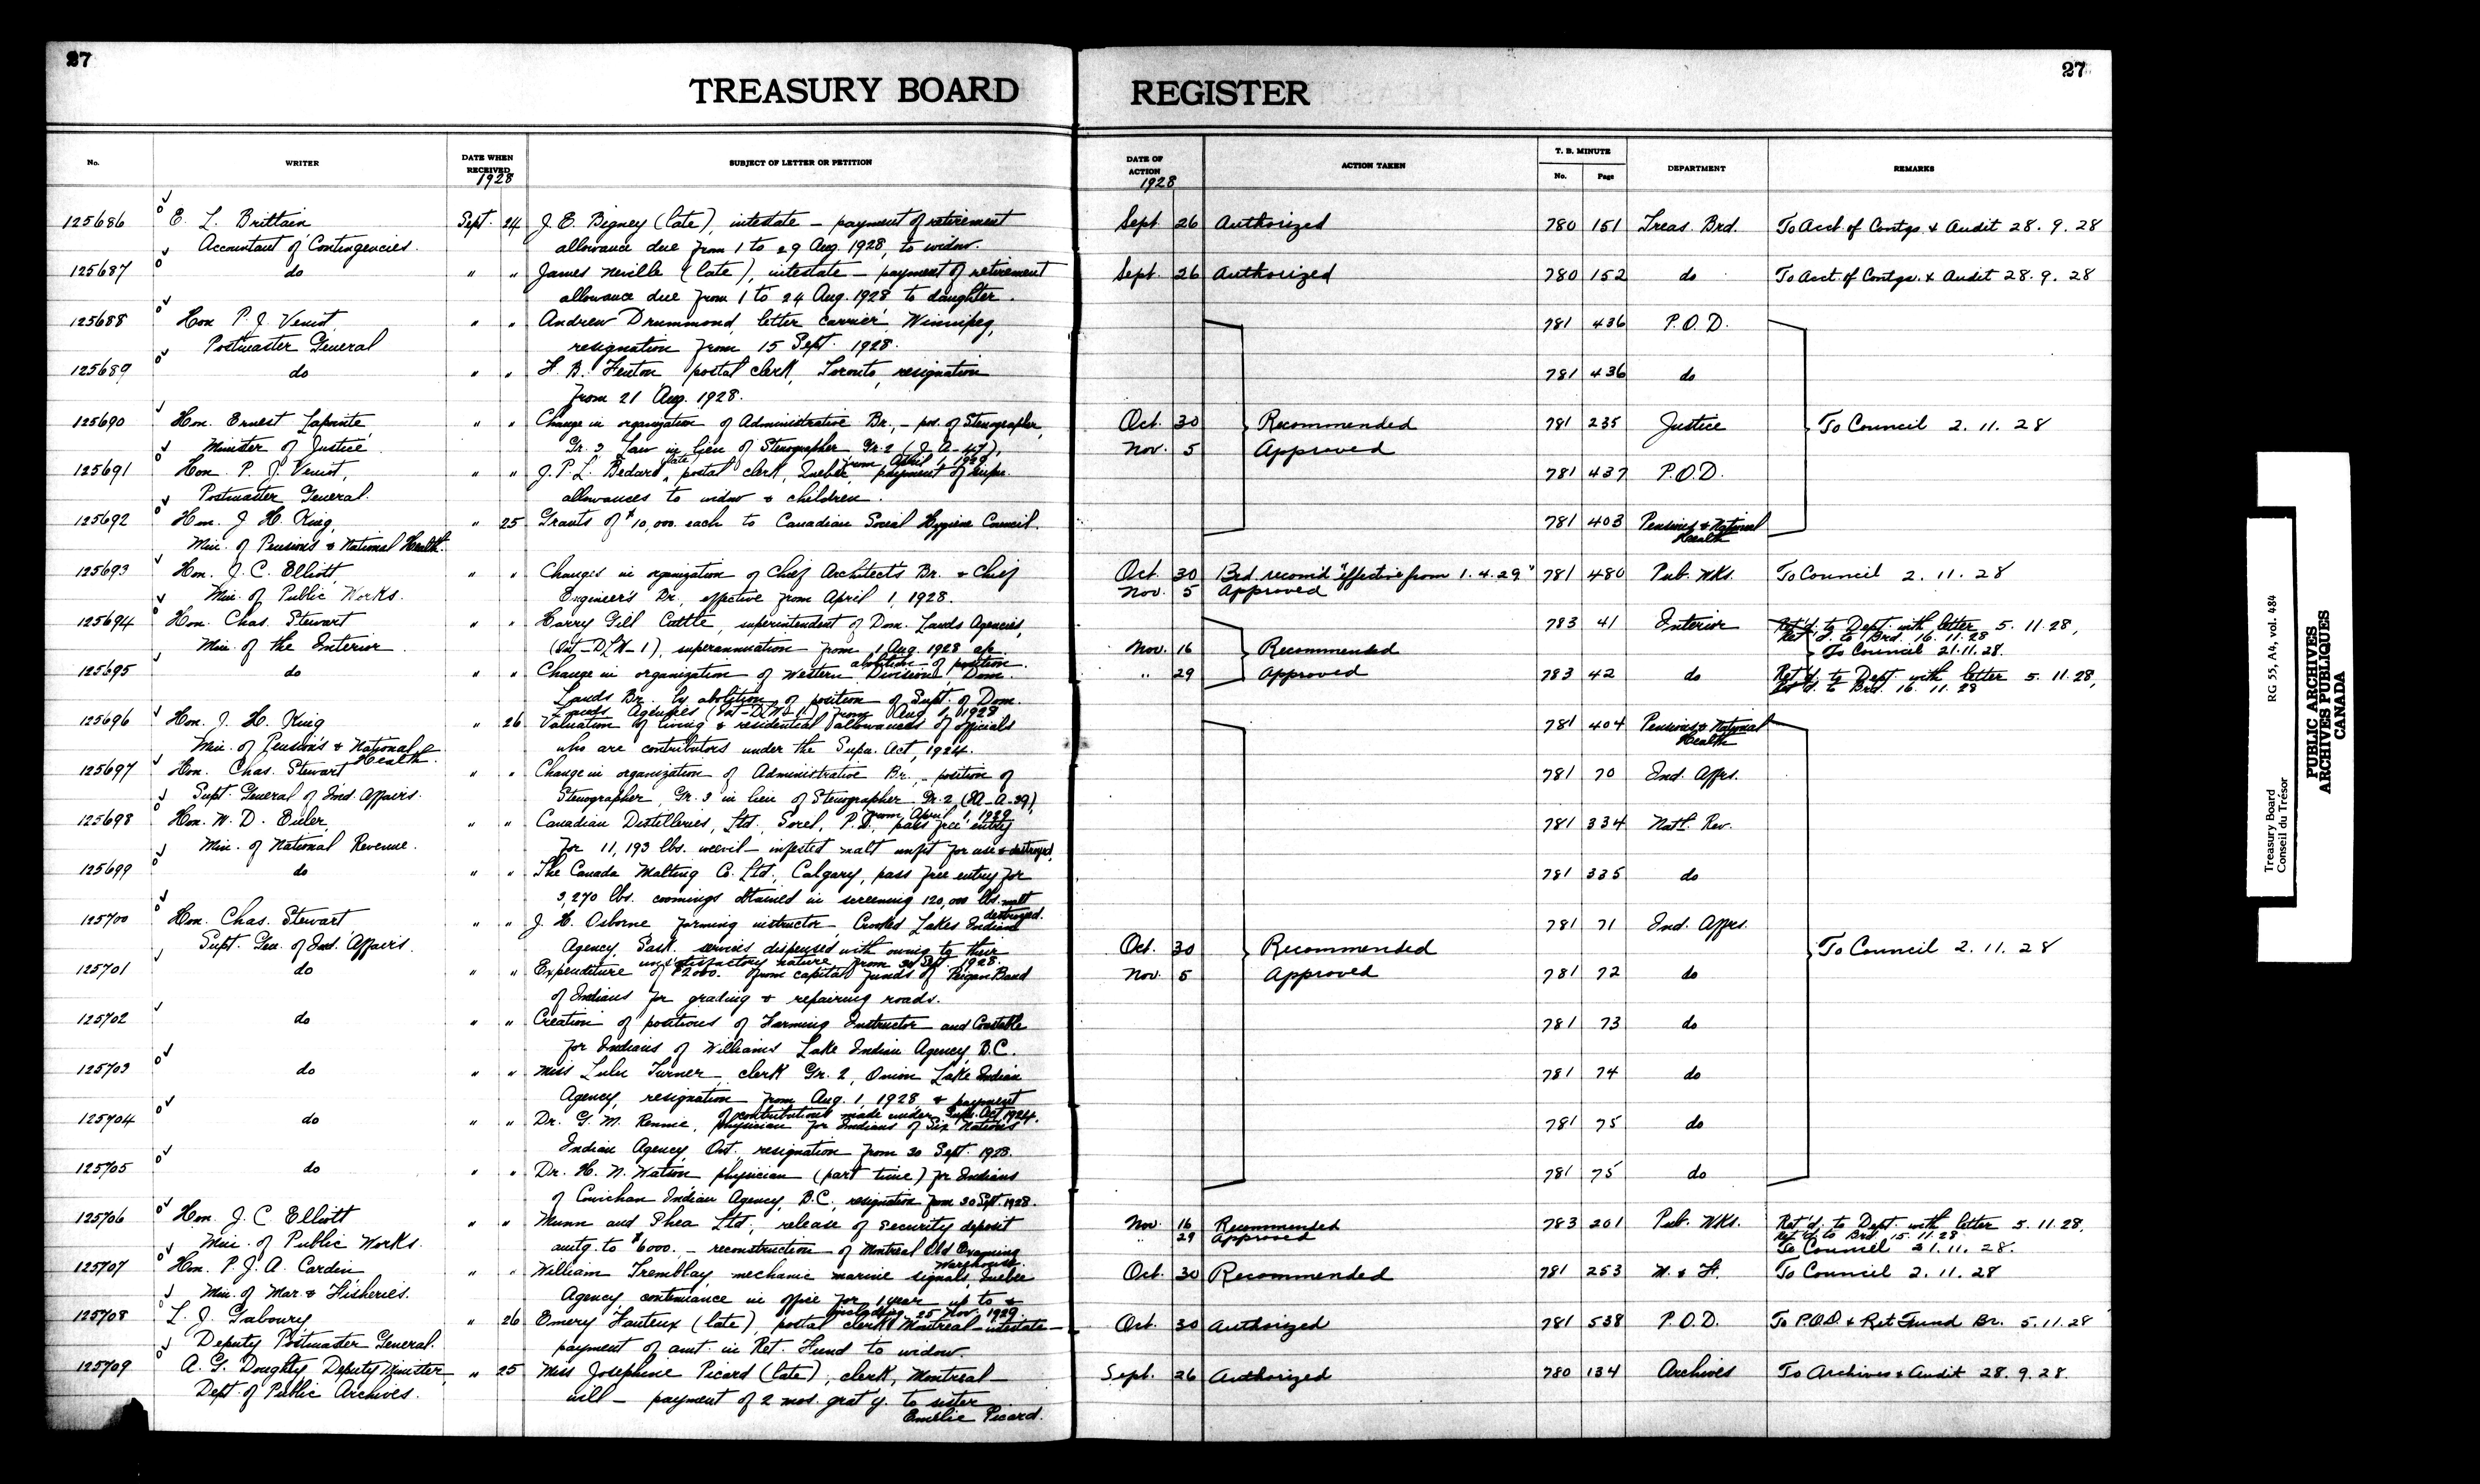 27
27
TREASURY BOARD REGISTER
No. WRITER DATE WHEN RECEIVED SUBJECT OF LETTER OR PETITION DATE OF ACTION ACTION TAKEN T. B. MINUTE No. Page DEPARTMENT REMARKS
1928 1928
125686 E. L. Brittain, Sept. 24 J. E. Bigney (late), intestate – payment of retirement Sept. 26 Authorized 780 151 Treas. Brd. To Acct. of Contgs. & Audit 28. 9. 28
Accountant of Contingencies. allowance due from 1 to 29 Aug. 1928, to widow.
125687 do " " James Neville (late), intestate – payment of retirement Sept. 26 Authorized 780 152 do To Acct. of Contgs. & Audit 28. 9. 28
allowance due from 1 to 24 Aug. 1928 to daughter.
125688 Hon P. J. Veniot, " " Andrew Drummond, letter carrier, Winnipeg, 781 436 P.O.D.
Postmaster General resignation from 15 Sept. 1928.
125689 do " " F. B. Fenton postal clerk, Toronto, resignation 781 436 do
from 21 Aug. 1928.
125690 Hon. Ernest Lapointe, " " Change in organization of Administrative Br., – pos. of Stenographer, Oct. 30 Recommended 781 235 Justice To Council 2. 11. 28
Minister of Justice Gr. 3 Law in lieu of Stenographer Gr. 2 (J. A-47), Nov. 5 Approved
from April 1, 1929
125691 Hon. P. J. Veniot, " " J. P. L. Bedard (late), postal clerk, Quebec, payment of supn. 781 437 P.O.D.
Postmaster General. allowances to widow & children.
125692 Hon. J. H. King, " 25 Grants of $10,000. each to Canadian Social Hygiene Council. 781 403 Pensions & National Health
Min. of Pensions & National Health.
125693 Hon. J. C. Elliott, " " Changes in organization of Chief Architects Br. & Chief Oct. 30 Brd. recom'd "effective from 1. 4. 29" 781 480 Pub. Wks. To Council 2. 11. 28
Min. of Public Works. Engineer's Br., effective from April 1, 1928. Nov. 5 Approved
125694 Hon. Chas. Stewart " " Harry Gill Cuttle, superintendent of Dom. Lands Agencies, 783 41 Interior Ret'd. to Dept. with letter 5. 11. 28,
Ret'd. to Brd. 16. 11. 28
Min. of the Interior (Int-DLW-1), superannuation from 1 Aug. 1928 a/c Nov. 16 Recommended To Council 21.11.28.
abolition of position.
125695 do " " Change in organization of Western Division, Dom. " 29 Approved 783 42 do Ret'd. to Dept. with letter 5. 11. 28,
Ret'd. to Brd. 16. 11. 28
Lands Br. by abolition of position of Supt. of Dom.
Lands Agencies (Int-DLW-1) from 1 Aug. 1928
125696 Hon. J. H. King " 26 Valuation of living & residential allowances of officials 781 404 Pensions & National Health
Min. of Pensions & National Health. who are contributors under the Supn. Act, 1924.
125697 Hon. Chas. Stewart " " Change in organization of Administrative Br., – position of 781 70 Ind. Affrs.
Supt. General of Ind. Affairs. Stenographer, Gr. 3 in lieu of Stenographer Gr. 2 (IA-A-29),
from April 1, 1929
125698 Hon. W. D. Euler, " " Canadian Distilleries, Ltd., Sorel, P.Q., pass free entry 781 334 Natl. Rev.
Min. of National Revenue. for 11,193 lbs. weevil-infested malt unfit for use & destroyed.
125699 do " " The Canada Malting Co. Ltd., Calgary, pass free entry for 781 335 do
3,270 lbs. coomings obtained in screening 120,000 lbs. malt
destroyed.
125700 Hon. Chas. Stewart " " J. H. Osborne farming instructor, Crooked Lakes Indian 781 71 Ind. Affrs.
Supt. Gen. of Ind. Affairs. Agency, Sask. services dispensed with owing to their Oct. 30 Recommended To Council 2. 11. 28
unsatisfactory nature from 30 Sept. 1928.
125701 do " " Expenditure of $2000. from capital funds of Peigan Band Nov. 5 Approved 781 72 do
of Indians for grading & repairing roads.
125702 do " " Creation of positions of Farming Instructor and Constable 781 73 do
for Indians of Williams Lake Indian Agency, B.C.
125703 do " " Miss Lulu Turner, clerk Gr. 2, Onion Lake Indian 781 74 do
Agency, resignation from Aug. 1, 1928 & payment
of contributions made under Supn. Act 1924.
125704 do " " Dr. G. M. Rennie, physician for Indians of Six Nations 781 75 do
Indian Agency, Ont., resignation from 30 Sept. 1928.
125705 do " " Dr. H. N. Watson physician (part time) for Indians 781 75 do
of Cowichan Indian Agency, B.C., resignation from 30 Sept. 1928.
125706 Hon. J. C. Elliott " " Munn and Shea Ltd., release of security deposit Nov. 16 Recommended 783 201 Pub. Wks. Ret'd. to Dept. with letter 5. 11. 28,
" 29 Approved Ret'd. to Brd. 15. 11. 28
Min. of Public Works. amtg. to $6000. – reconstruction of Montreal Old Examining To Council 21. 11. 28.
Warehouse.
125707 Hon. P. J. A. Cardin " " William Tremblay, mechanic marine signals, Quebec Oct. 30 Recommended 781 253 M. & F. To Council 2. 11. 28
Min. of Mar. & Fisheries. Agency continuance in office for 1 year up to &
including 25 Nov. 1929.
125708 L. J. Gaboury, " 26 Omery Fauteux (late), postal clerk Montreal – intestate – Oct. 30 Authorized 781 538 P.O.D. To P.O.D. & Ret. Fund Br. 5. 11. 28
Deputy Postmaster General. payment of amt. in Ret. Fund to widow.
125709 A. G. Doughty, Deputy Minister, " 25 Miss Josephine Picard (late), clerk, Montreal Sept. 26 Authorized 780 134 Archives To Archives & Audit 28. 9. 28.
Dept. of Public Archives. will – payment of 2 mos. grat'y. to sister
Emélie Picard.
Treasury Board RG 55, A4, vol. 484
Conseil du Trésor
PUBLIC ARCHIVES
ARCHIVES PUBLIQUES
CANADA